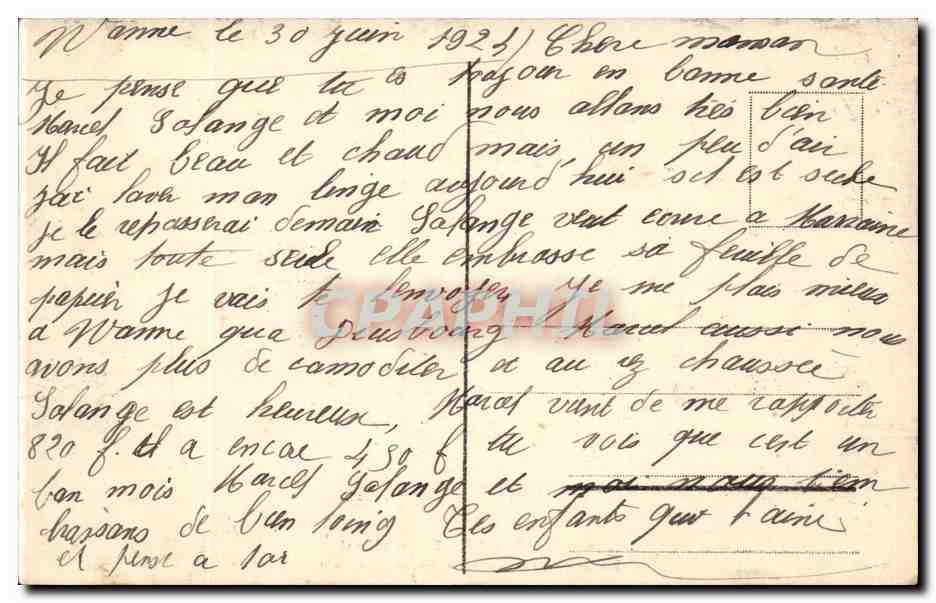 Wanne le 30 juin 1924) Chere maman
Je pense que tu es toujour en bonne sante
Marcel Solange et moi nous allons tres bien
Il fait beau et chaud mais un peu d'air
j'ai laver mon linge aujourd'hui sil est seche
je le repasserai demain Solange veut ecrire a Marraine
mais toute seule elle embrasse sa feuille de
papier je vais te l'envoyer Je me plais mieux
a Wanne qua Duisbourg Marcel aussi nous
avons plus de camoditer et au rez chaussée
Solange est heureux, Marcel vient de me rapporter
820 f. il a encore 430 f tu vois que c'est un
bon mois Marcel Solange et moi nous t'em
brassons de bien loing Tes enfants qui t'aime
et pense a toi
CPAPHIL